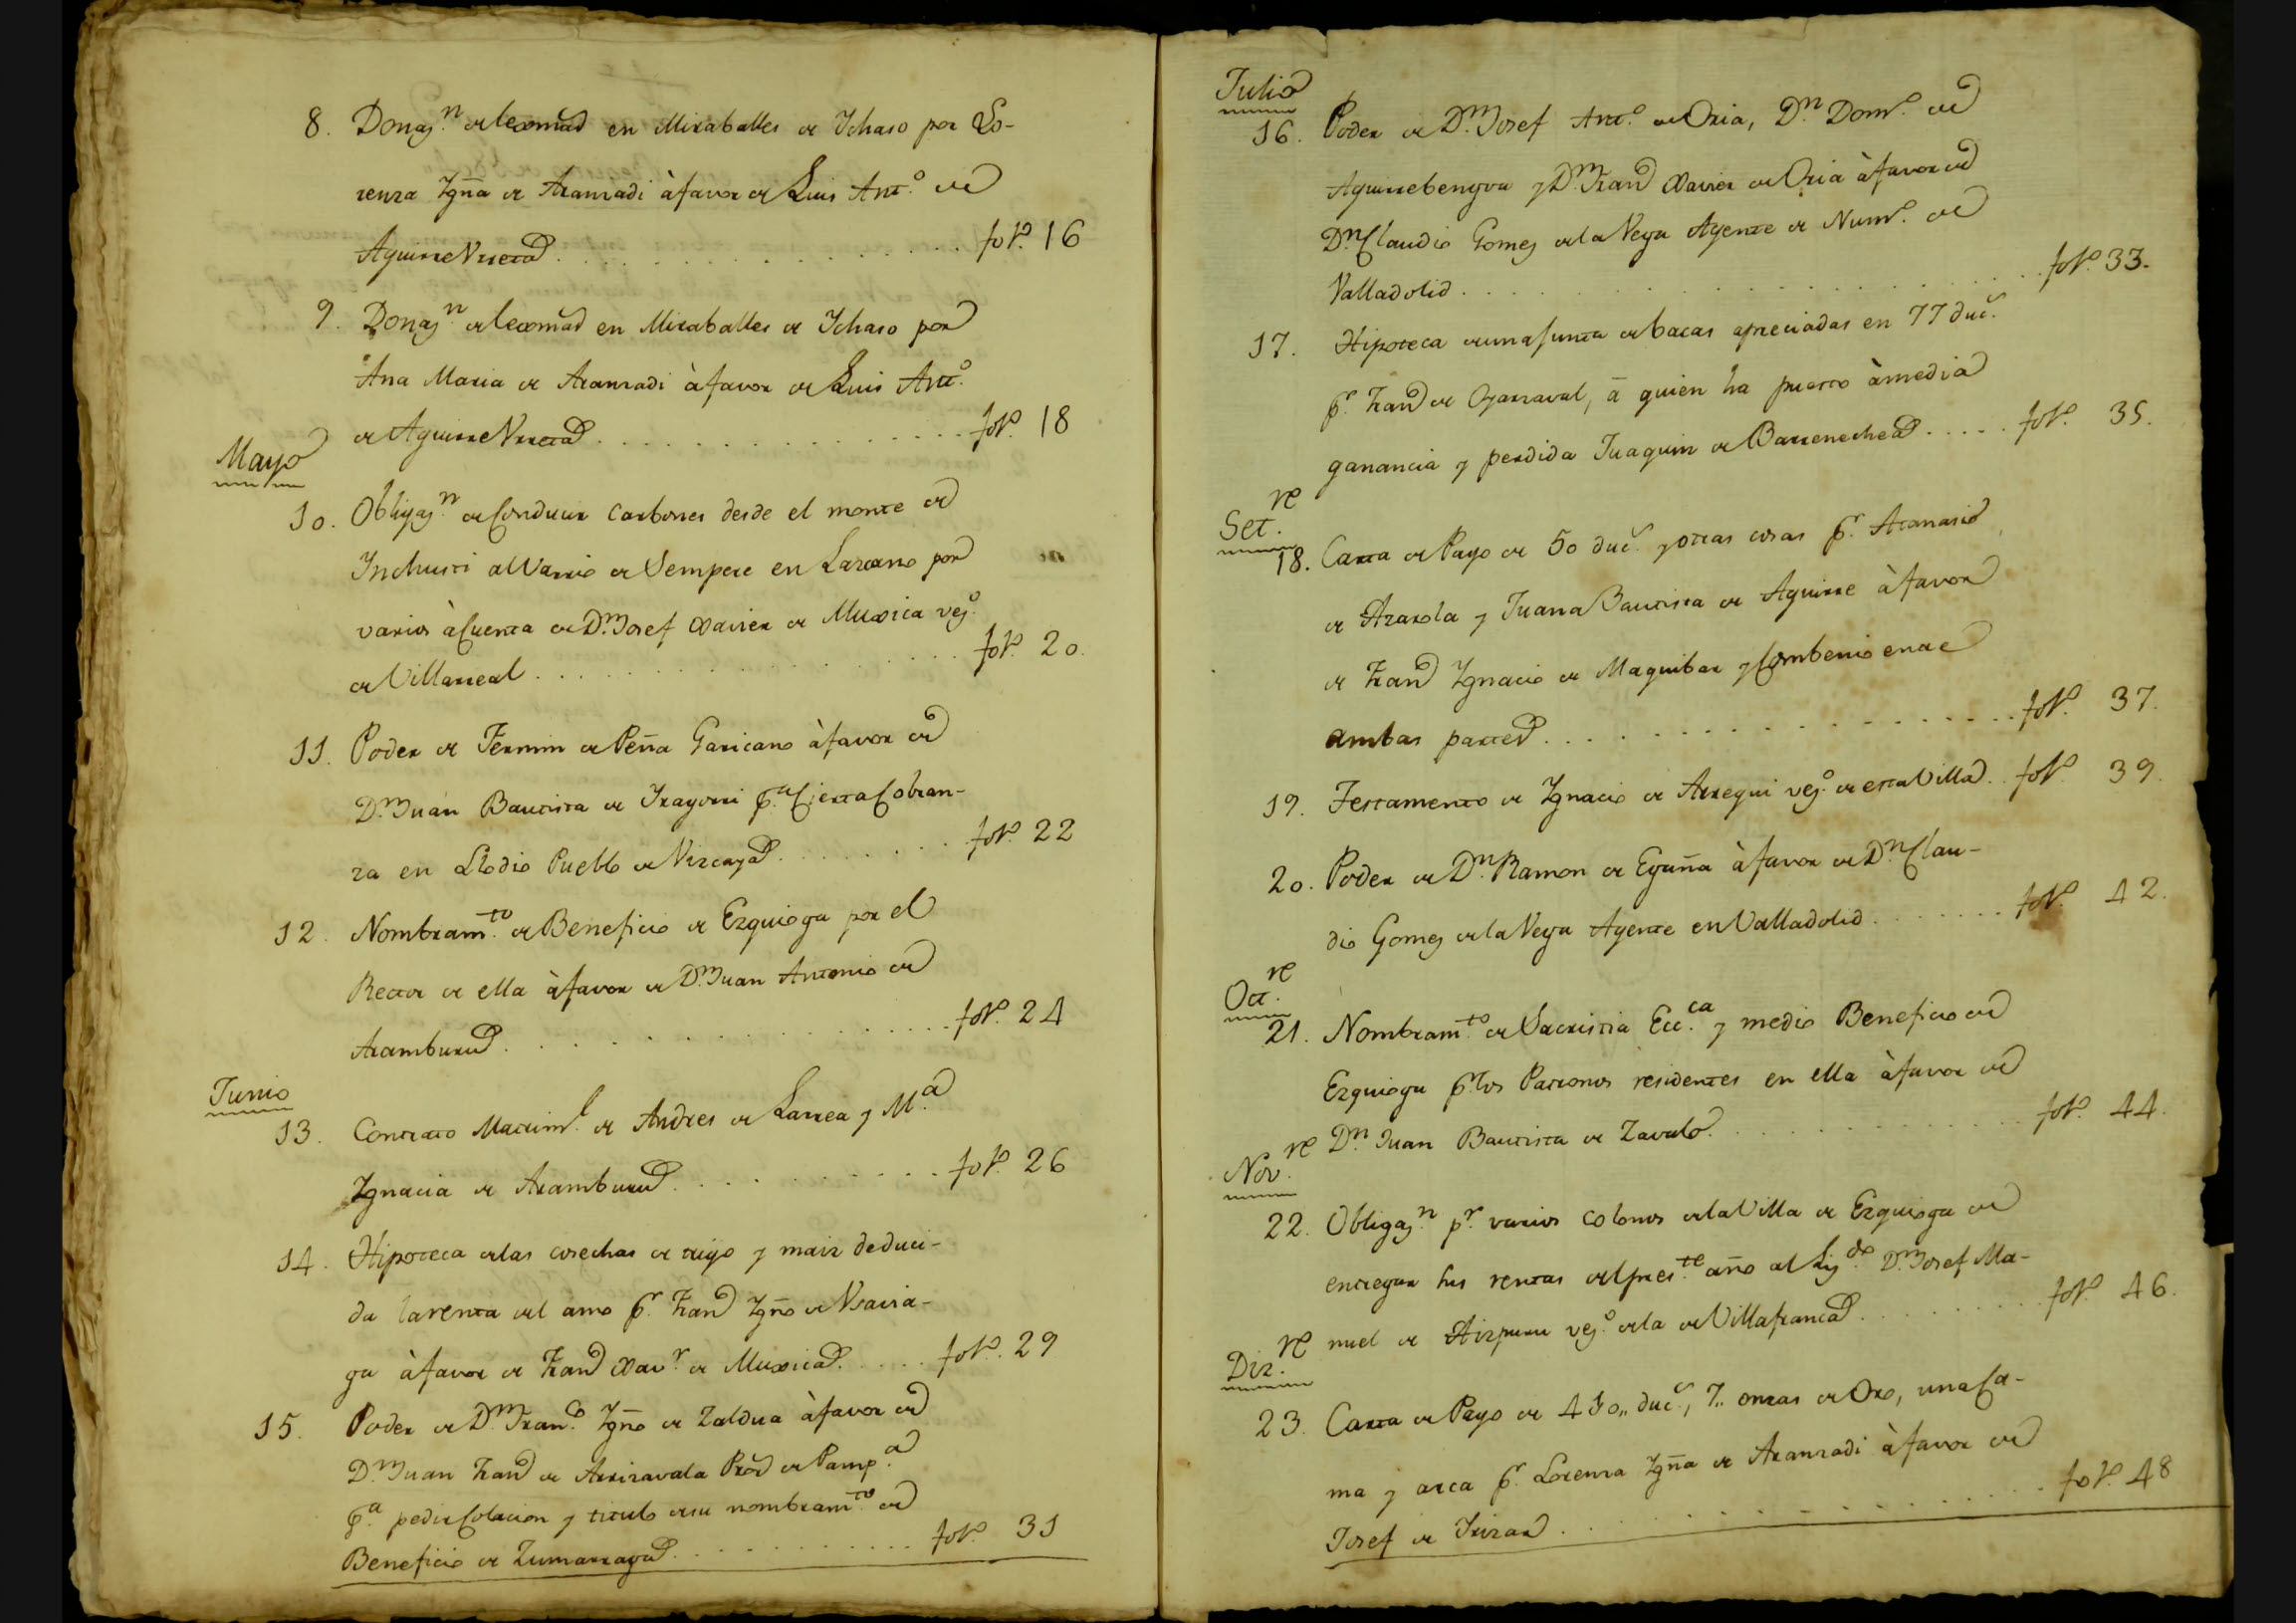 8. Donaz.n de lexmãd en Miraballes de Ichaso por Lo-
renza Ygña de Aranzadi à favor de Luis Ant.o de
Aguirre Vrreta . . . fol.o 16
9. Donaz.n de lexmãd en Miraballes de Ichaso por
Ana Maria de Aranzadi à favor de Luis Ant.o
de Aguirre Vrreta . . . fol.o 18
Mayo
10. Obligaz.n de Conducir Carbones desde el monte de
Inchusti al Varrio de Sempere en Lazcano por
varios à Cuenta de D.n Josef Xavier de Muxica vez.o
de Villarreal . . . fol.o 20.
11. Poder de Fermin de Peña Garicano à favor de
D.n Juan Bautista de Yragorri p.a Cierta Cobran-
za en Llodio Pueblo de Vizcaya . . . fol.o 22
12. Nombram.to de Beneficio de Ezquioga por el
Rector de ella à favor de D.n Juan Antonio de
Aramburu . . . fol.o 24
Junio
13. Contrato Matrim.l de Andres de Larrea y M.a
Ygnacia de Aramburu . . . fol.o 26
14. Hipoteca de las cosechas de trigo y maiz deduci-
da la renta del amo p.r Fran.co Ygño de Vsavia-
ga à favor de Fran.co Xav.r de Muxica . . . fol.o 29
15. Poder de D.n Fran.co Ygño de Zaldua à favor de
D.n Juan Fran.co de Arrizavala Prõr de Pamp.a
p.a pedir Colacion y titulo de su nombram.to de
Beneficio de Zumarraga . . . fol.o 31
Julio
16. Poder de D.n Josef Ant.o de Oria, D.n Dom.o de
Aguirrebengoa y D.n Fran.co Xavier de Oria à favor de
D.n Claudio Gomez de la Vega Agente de Num.o de
Valladolid . . . fol.o 33.
17. Hipoteca de una Junta de bacas apreciadas en 77 duc.s
p.r Fran.co de Oyarzaval, à quien ha puesto à media
ganancia y perdida Juaquin de Barrenechea . . . fol.o 35.
Set.re
18. Carta de Pago de 50 duc.s y otras cosas p.r Atanasio
de Arazola y Juana Bautista de Aguirre à favor
de Fran.co Ygnacio de Maquibar y Combenio entre
ambas partes . . . fol.o 37.
19. Testamento de Ygnacio de Arregui vez.o de esta Villa . . fol.o 39.
20. Poder de D.n Ramon de Eguña à favor de D.n Clau-
dio Gomez de la Vega Agente en Valladolid . . . fol.o 42.
Oct.re
21. Nombram.to de Sacristia Ecc.ca y medio Beneficio de
Ezquioga p.r los Patronos residentes en ella à favor de
D.n Juan Bautista de Zavalo . . . fol.o 44.
Nov.re
22. Obligaz.n p.r varios colonos de la Villa de Ezquioga de
entregar sus rentas del pres.te año al Liz.do D.n Josef Ma-
nuel de Aizpuru vez.o de la de Villafranca . . . fol.o 46.
Diz.re
23. Carta de Pago de 430,, duc.s, 7,, onzas de Oro, una Ca-
ma y arca p.r Lorenza Ygña de Aranzadi à favor de
Josef de Irizar . . . fol.o 48